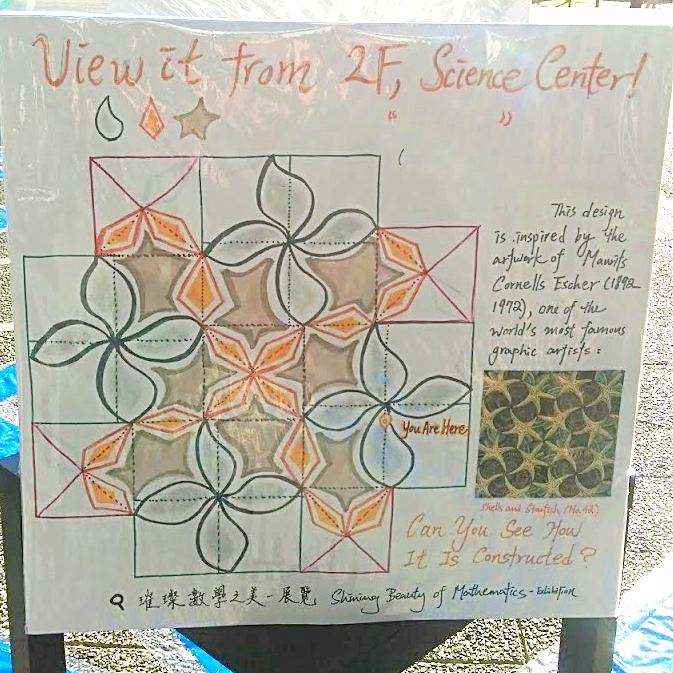 View it from 2F, Science Center!
“ ”
This design
is inspired by the
artwork of Maurits
Cornells Escher (1892
1972), one of the
world's most famous
graphic artists:
You Are Here
Shells and Starfish (No.42)
Can You See How
It Is Constructed?
璀璨數學之美-展覽 Shining Beauty of Mathematics-Exhibition